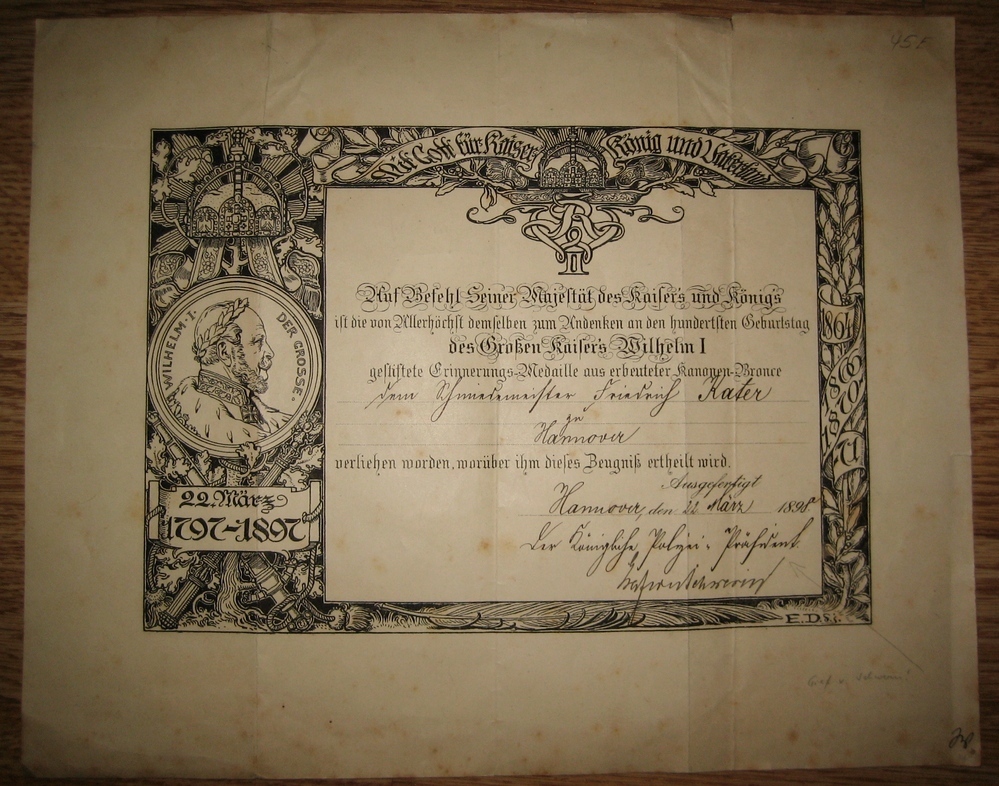 Mit Gott für Kaiser König und Vaterland
WILHELM·I· DER GROSSE·
22. März
1797-1897
1864
1866
1870
71
W II
Auf Befehl Seiner Majestät des Kaisers und Königs
ist die von Allerhöchst demselben zum Andenken an den hundertsten Geburtstag
des Großen Kaisers Wilhelm I
gestiftete Erinnerungs-Medaille aus erbeuteter Kanonen-Bronce
dem Schmiedemeister Friedrich Kater
zu
Hannover
verliehen worden, worüber ihm dieses Zeugniß ertheilt wird.
Ausgefertigt
Hannover, den 22 März 1898.
Der Königliche Polizei-Präsident
E.D.
Graf v. Schwerin!